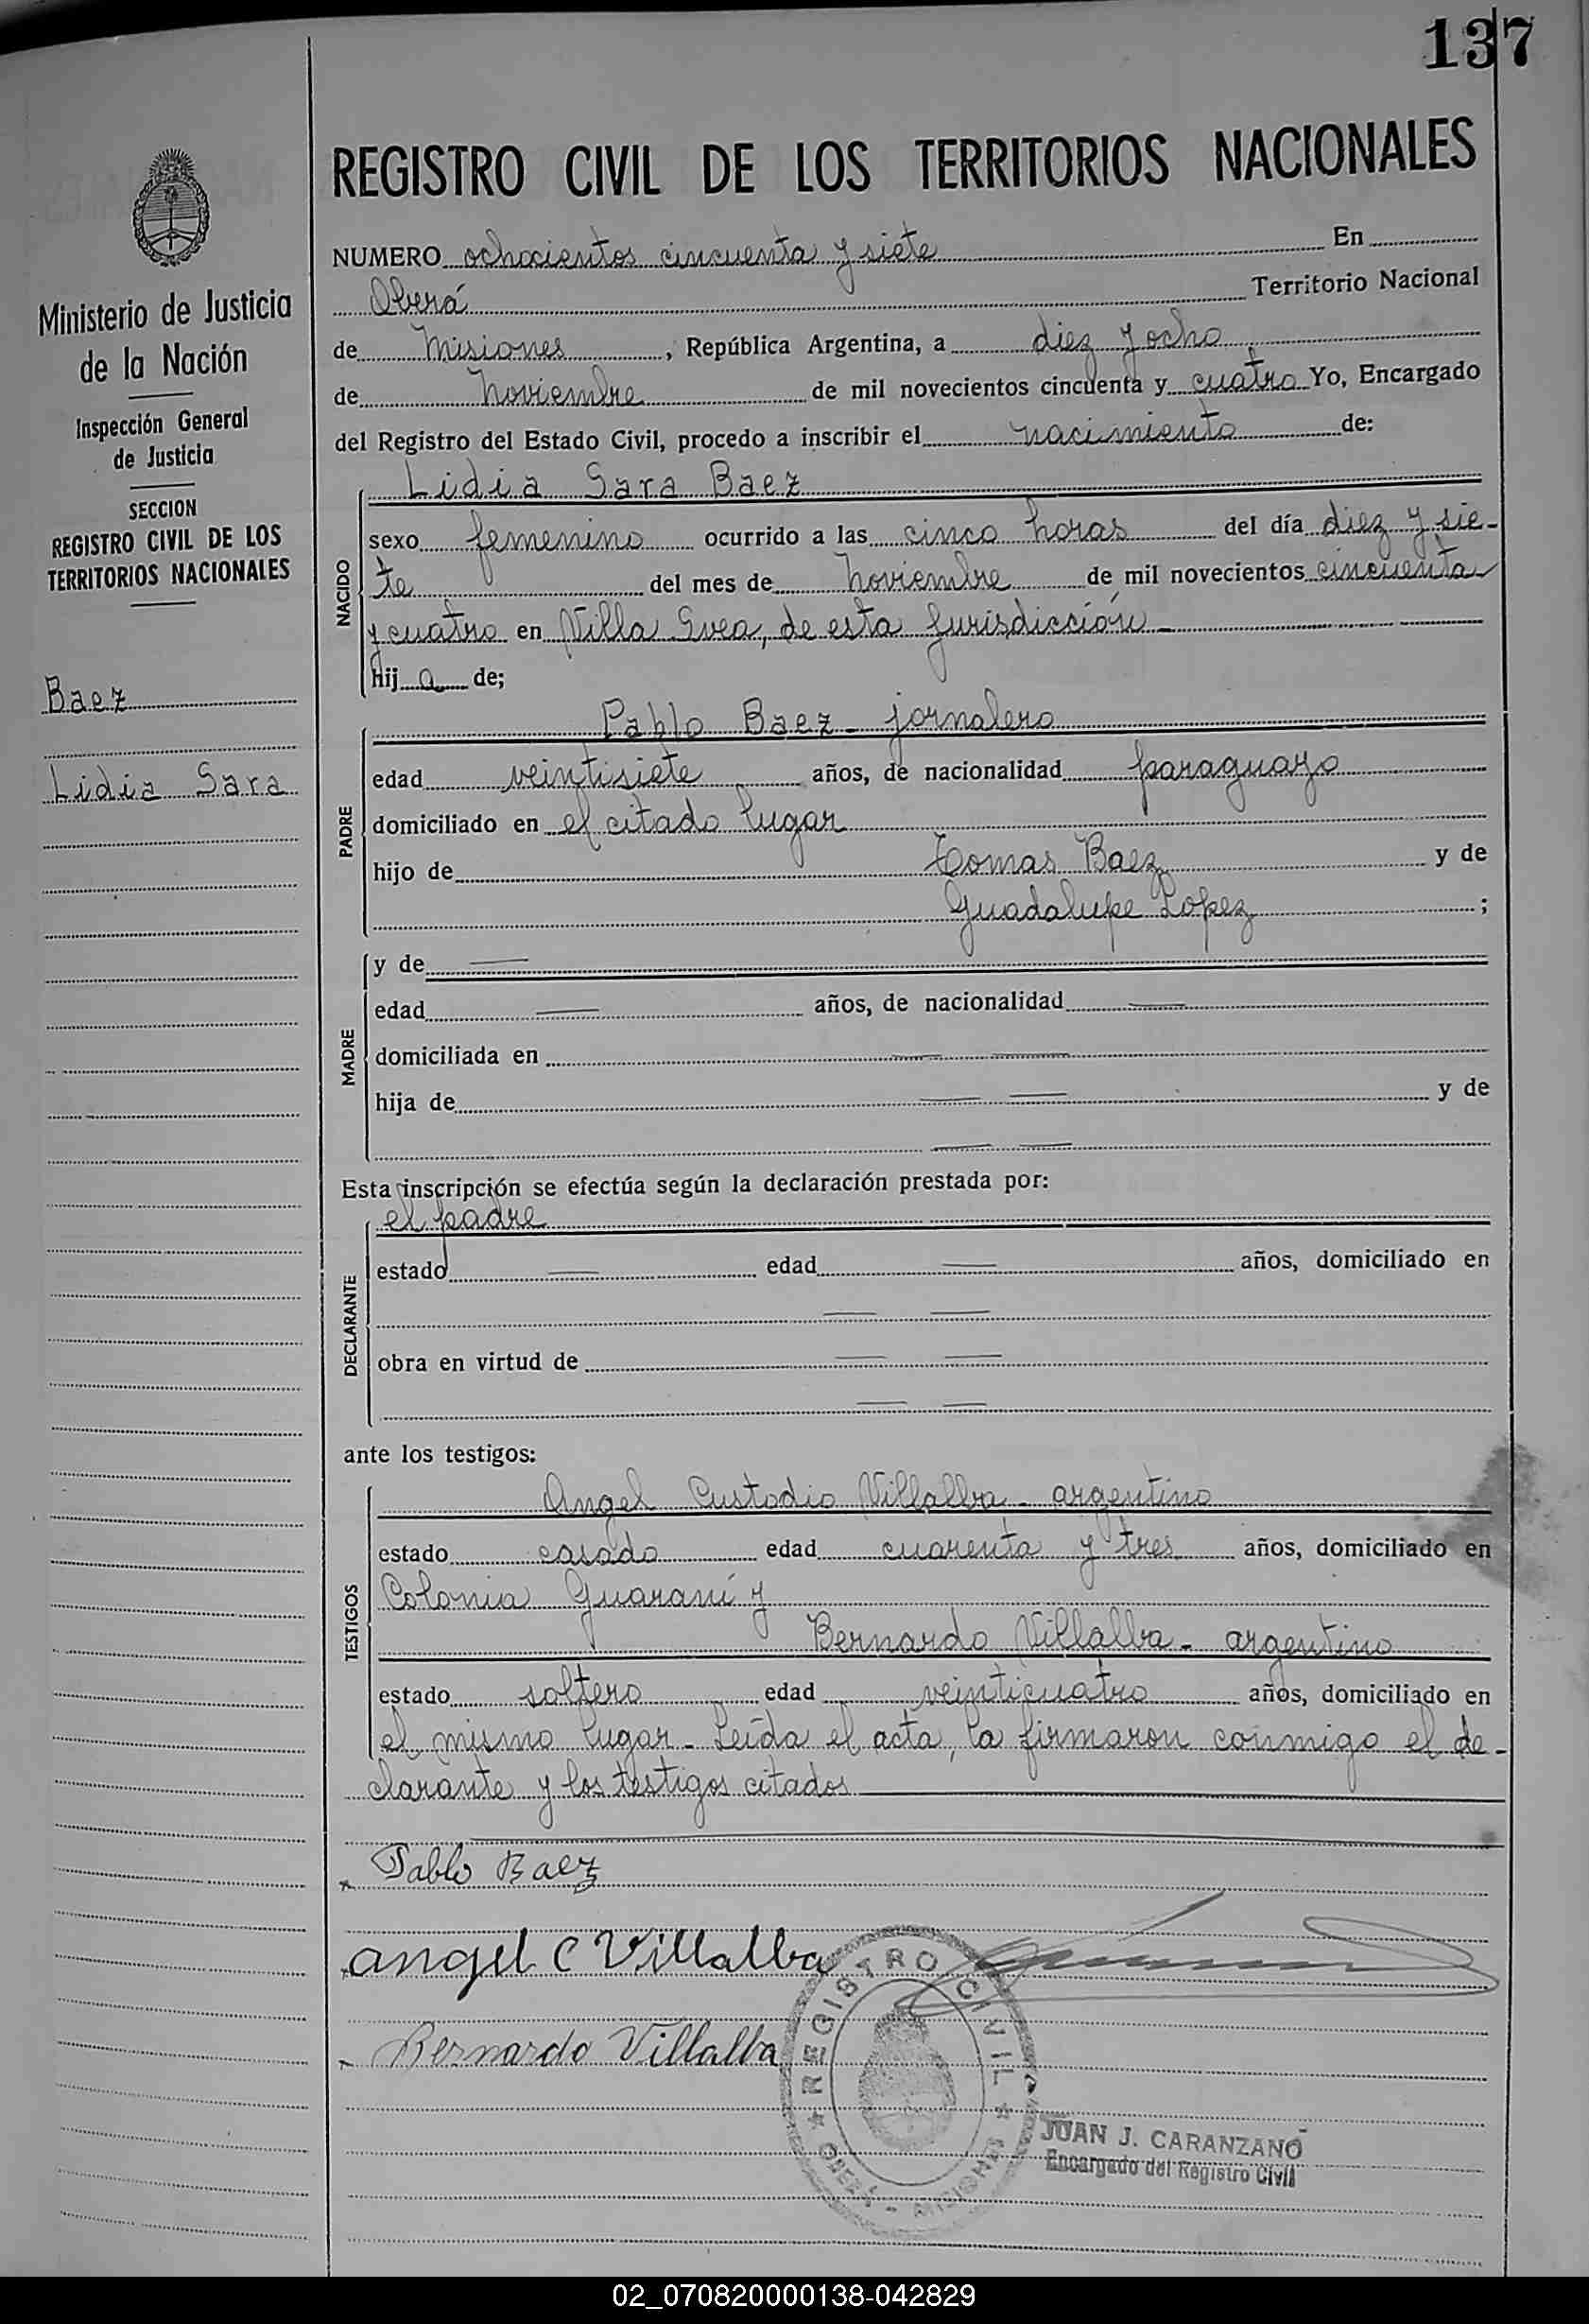 137
REGISTRO CIVIL DE LOS TERRITORIOS NACIONALES
Ministerio de Justicia
de la Nación
Inspección General
de Justicia
SECCION
REGISTRO CIVIL DE LOS
TERRITORIOS NACIONALES
Baez
Lidia Sara
NUMERO ochocientos cincuenta y siete En
Oberá Territorio Nacional
de Misiones, República Argentina, a diez y ocho
de Noviembre de mil novecientos cincuenta y cuatro Yo, Encargado
del Registro del Estado Civil, procedo a inscribir el nacimiento de:
NACIDO
Lidia Sara Baez
sexo femenino ocurrido a las cinco horas del día diez y sie-
te del mes de Noviembre de mil novecientos cincuenta
y cuatro en Villa Svea, de esta Jurisdicción
hija de;
PADRE
Pablo Baez - jornalero
edad veintisiete años, de nacionalidad paraguayo
domiciliado en el citado lugar
hijo de Tomas Baez y de
Guadalupe Lopez ;
MADRE
y de —
edad — años, de nacionalidad —
domiciliada en — —
hija de — — y de
— —
Esta inscripción se efectúa según la declaración prestada por:
DECLARANTE
el padre
estado — edad — años, domiciliado en
— —
obra en virtud de — —
— —
ante los testigos:
TESTIGOS
Angel Custodio Villalba - argentino
estado casado edad cuarenta y tres años, domiciliado en
Colonia Guaraní y
Bernardo Villalba - argentino
estado soltero edad veinticuatro años, domiciliado en
el mismo lugar - Leída el acta, la firmaron conmigo el de-
clarante y los testigos citados
Pablo Baez
angel C Villalba
Bernardo Villalba
REGISTRO CIVIL
OBERÁ - MISIONES
JUAN J. CARANZANO
Encargado del Registro Civil
02_070820000138-042829